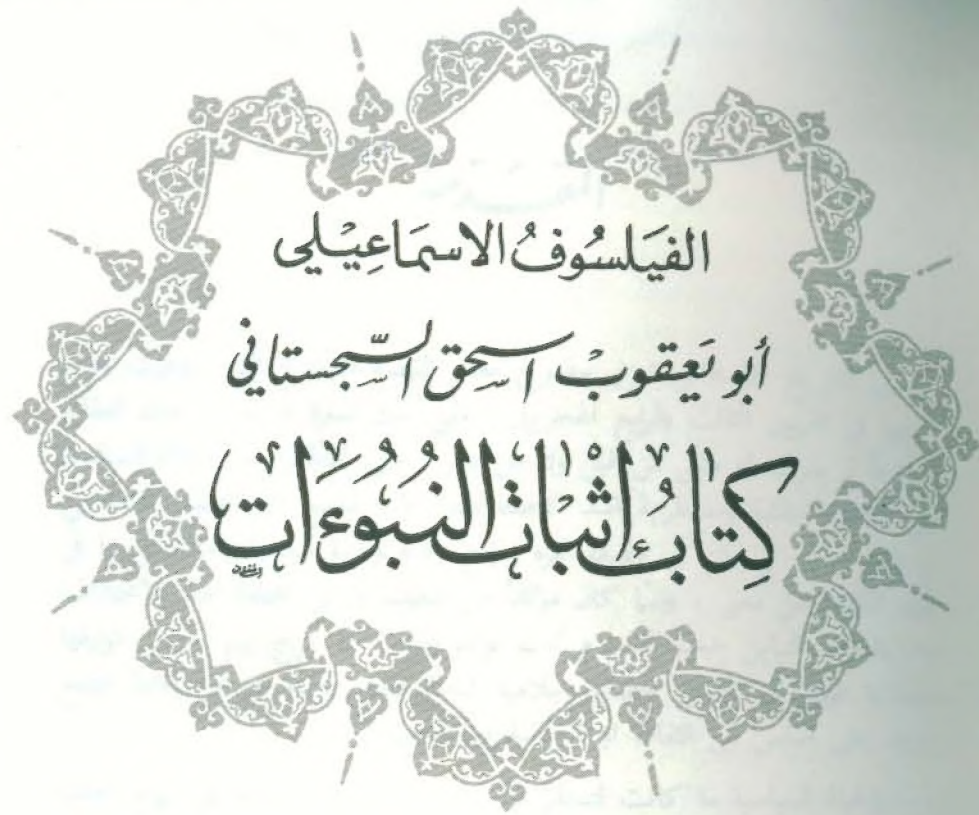 الفَيَلسُوفُ الاسمَاعِيْلي
أبو يَعقوبْ اسحق السّجستاني
كِتَابُ اثْبَات النُبُوءَات